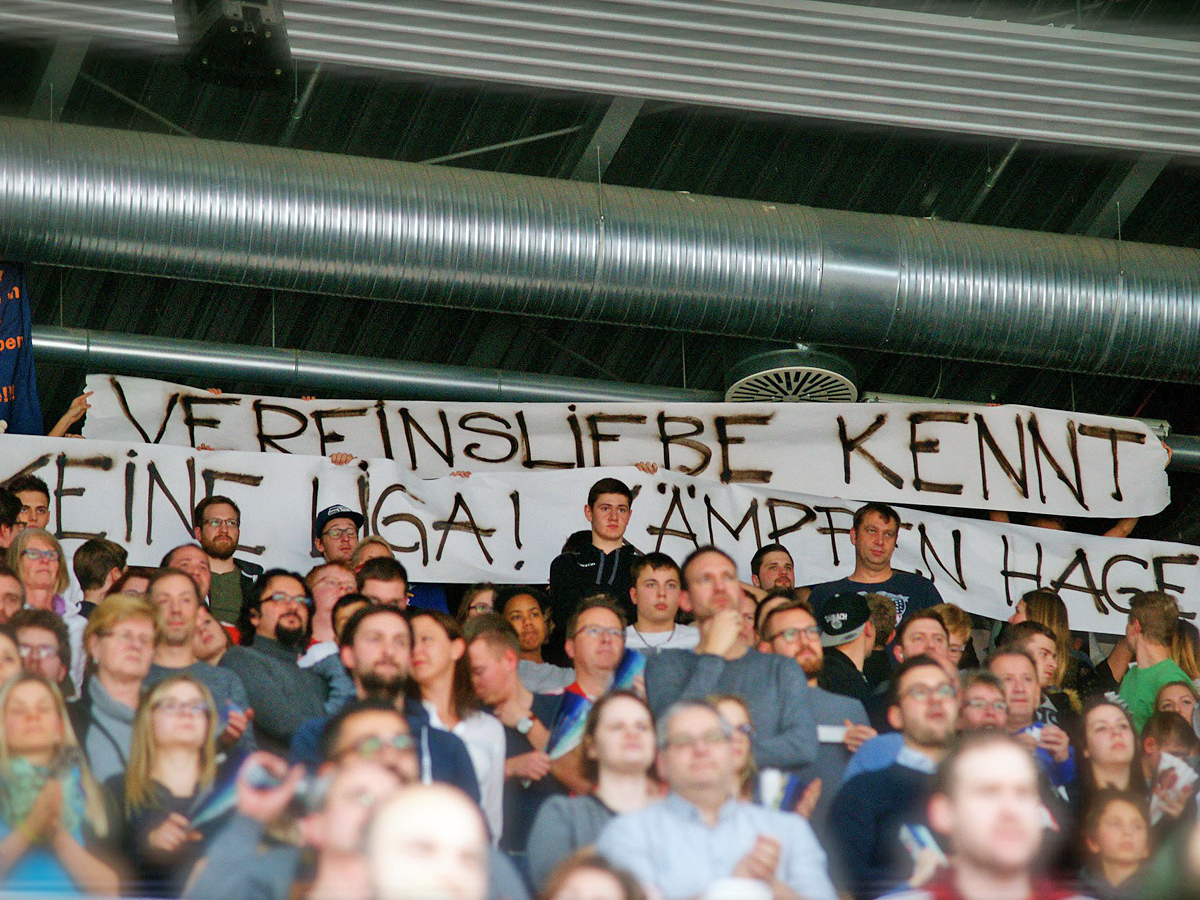 VEREINSLIEBE KENNT
KEINE LIGA! KÄMPFEN HAGE